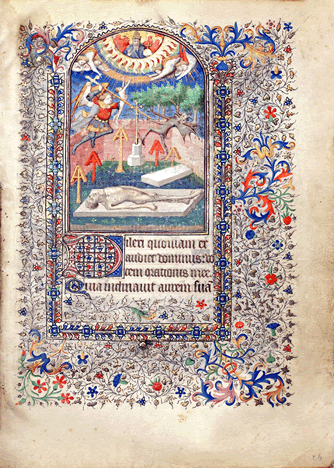 Dilexi quoniam ex
audiet dominus vo
cem orationis mee
Quia inclinavit aurem suã